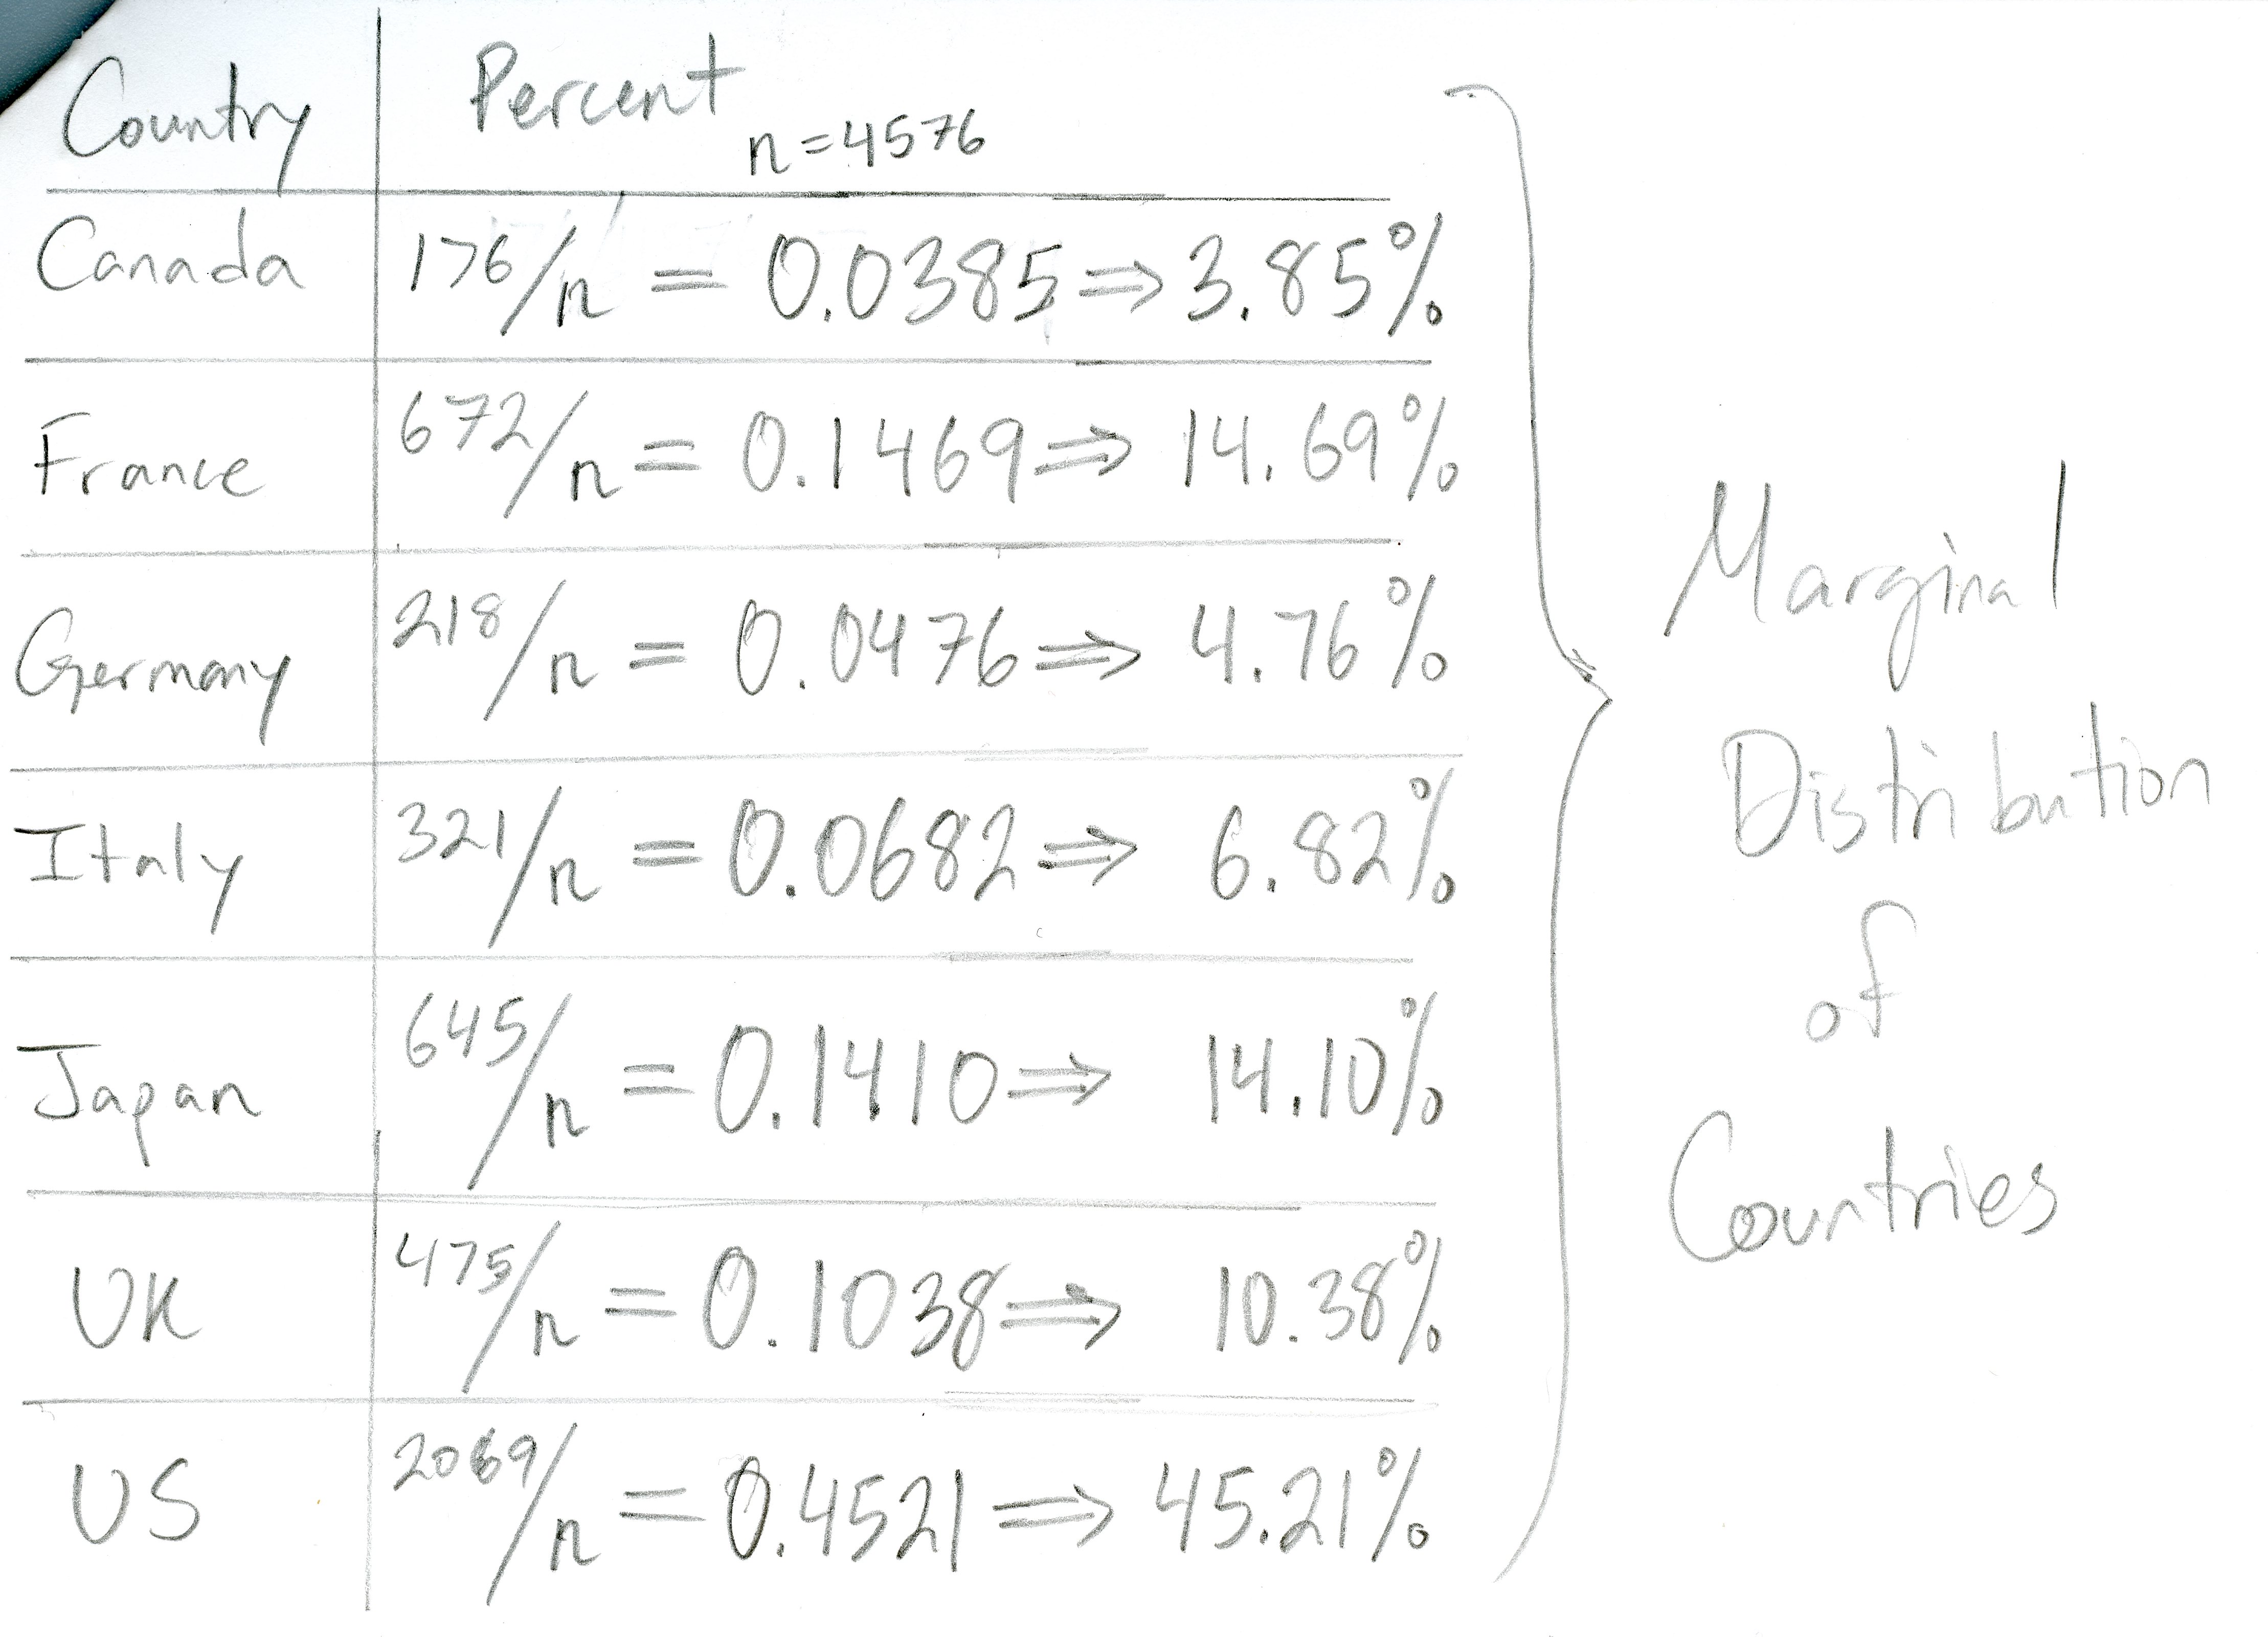 Country Percent n=4576
Canada 176/n = 0.0385 ⇒ 3.85%
France 672/n = 0.1469 ⇒ 14.69%
Germany 218/n = 0.0476 ⇒ 4.76%
Italy 321/n = 0.0682 ⇒ 6.82%
Japan 645/n = 0.1410 ⇒ 14.10%
UK 475/n = 0.1038 ⇒ 10.38%
US 2069/n = 0.4521 ⇒ 45.21%
Marginal
Distribution
of
Countries